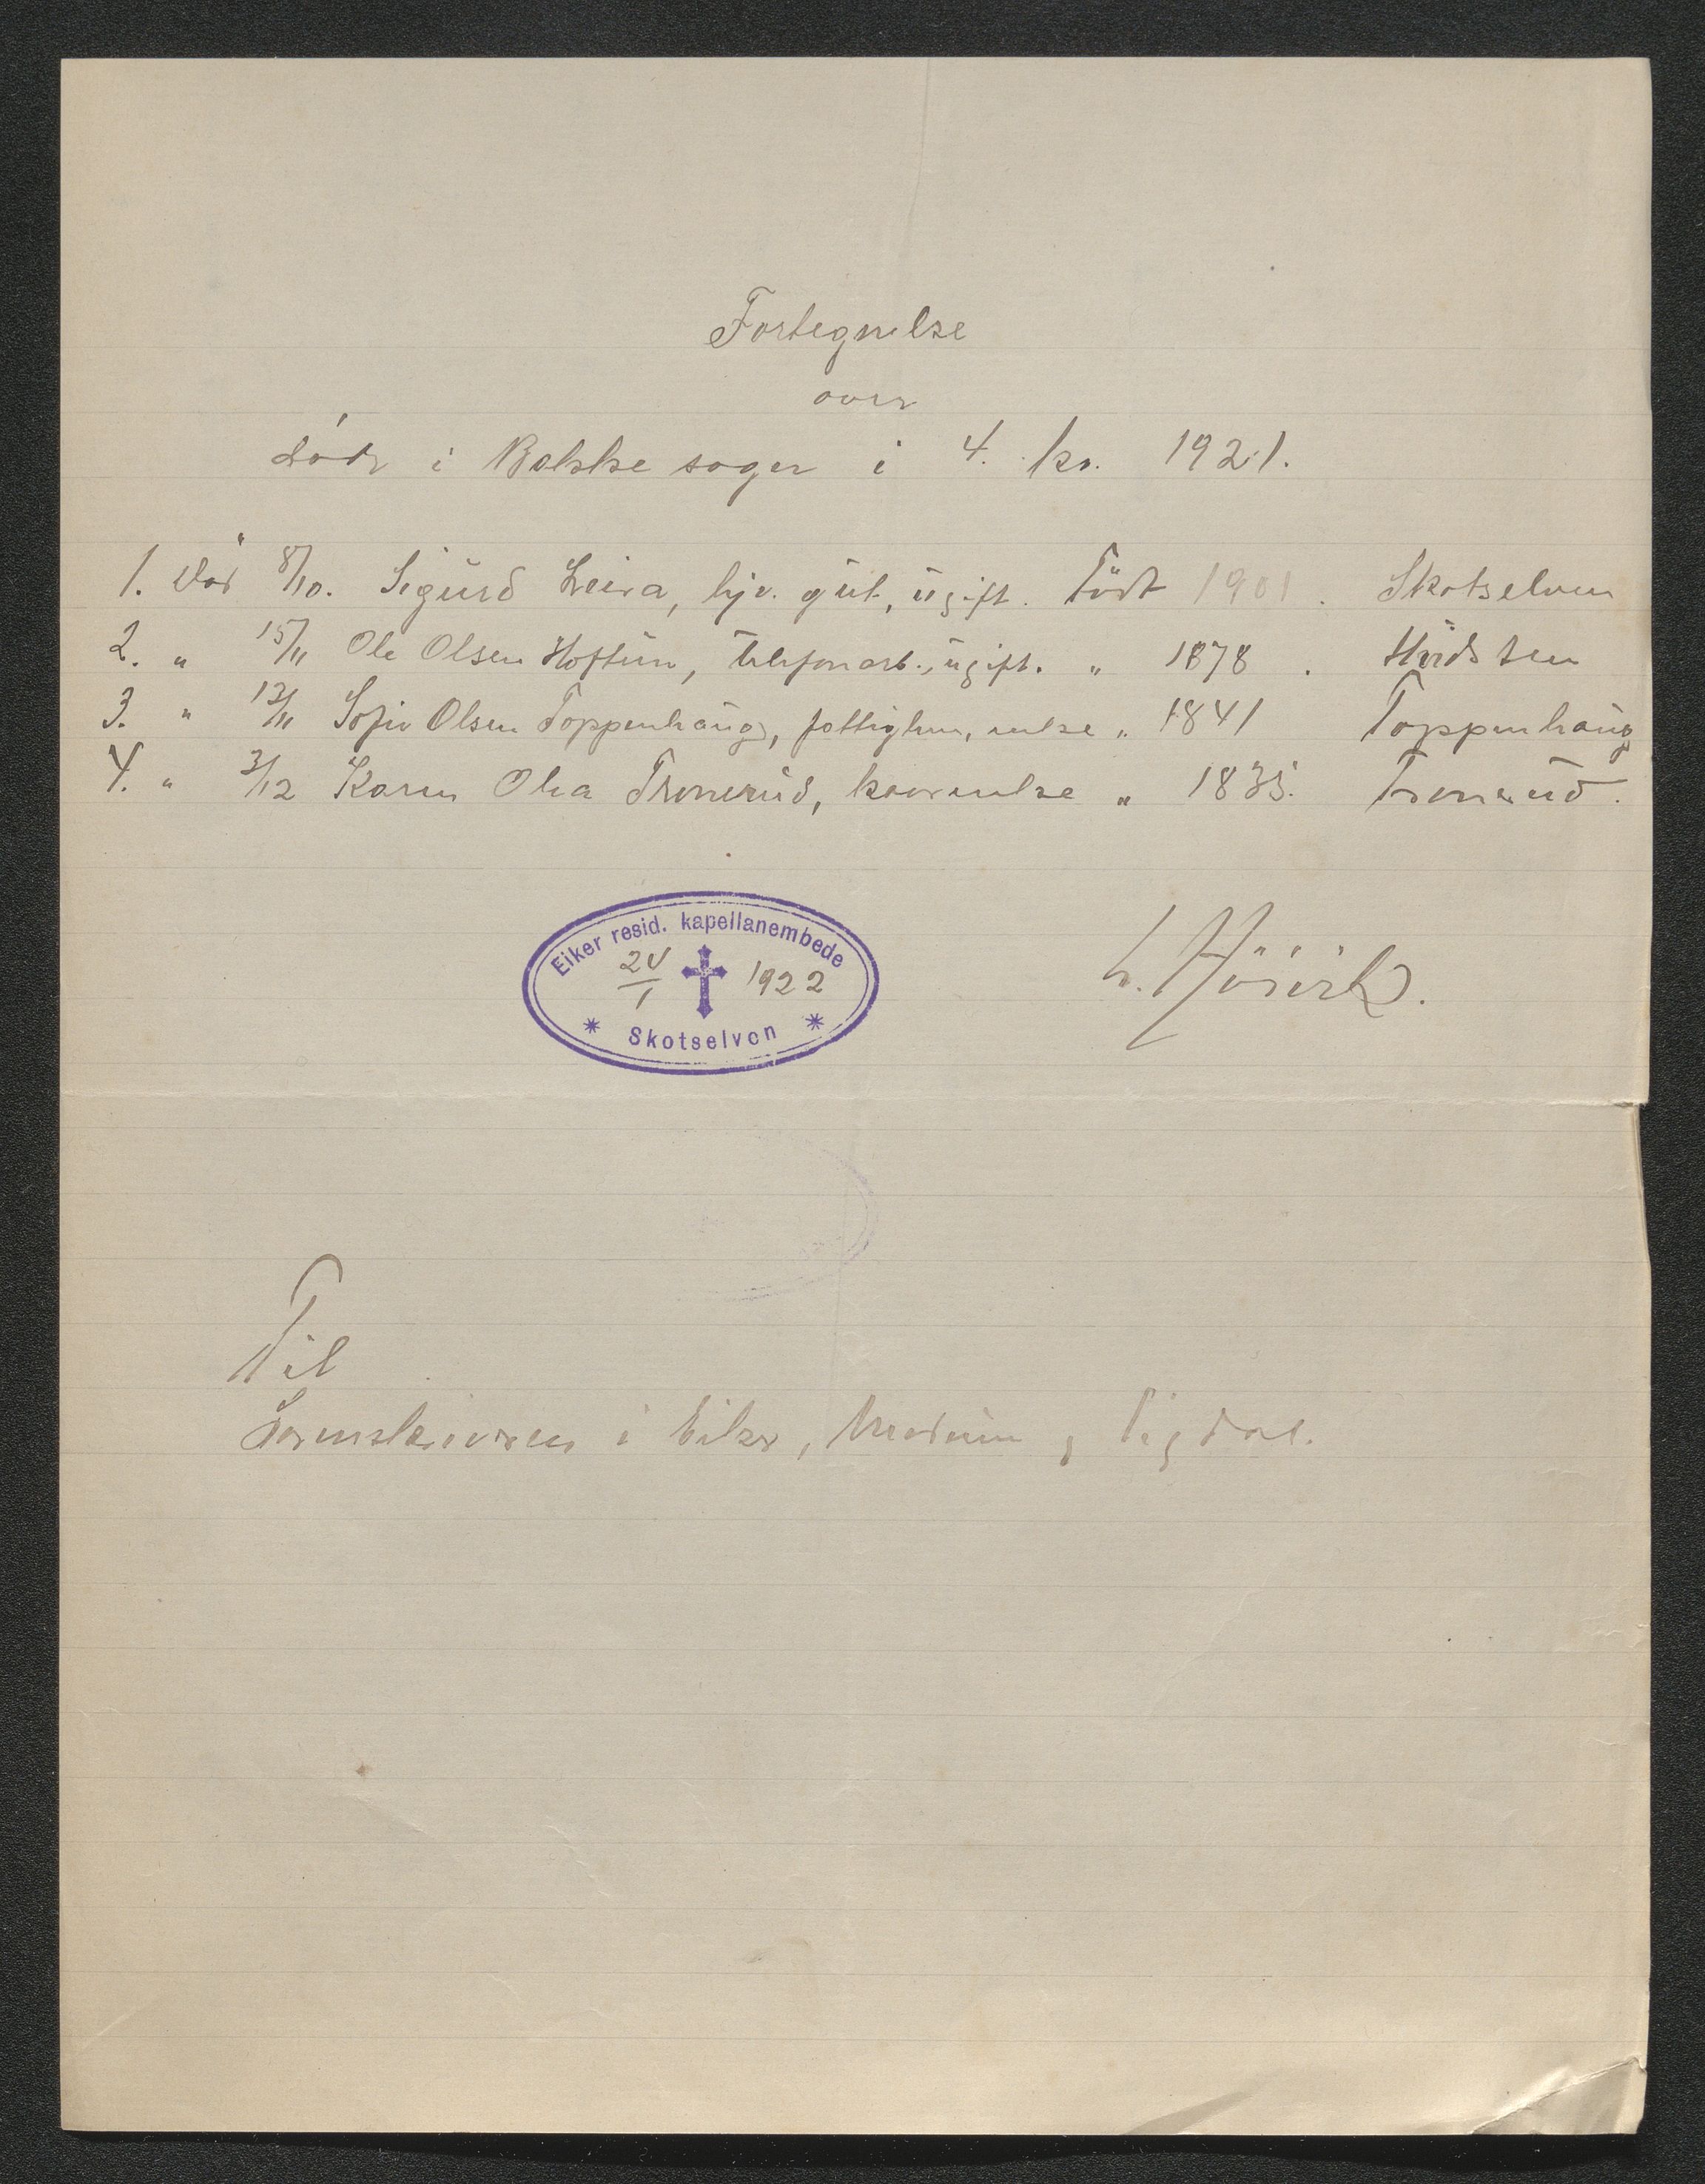 Fortegnelse
over
døde i Bakke sogn i 4. kv. 1921.
1. Død 8/10. Sigurd Leira, hjv. gut, ugift. Født 1901. Skotselven
2. " 15/11 Ole Olsen Hoftun, telefonarb., ugift. " 1878. Hvidsten
3. " 12/11 Sofie Olsen Toppenhaug, fattiglem, enke " 1841 Toppenhaug
4. " 3/12 Karen Olea Tronerud, kaarenke " 1835. Tronerud.
Eiker resid. kapellanembede
24/1 1922
* Skotselven *
Til
Lensmanden i Eiker, Modum og Sigdal.